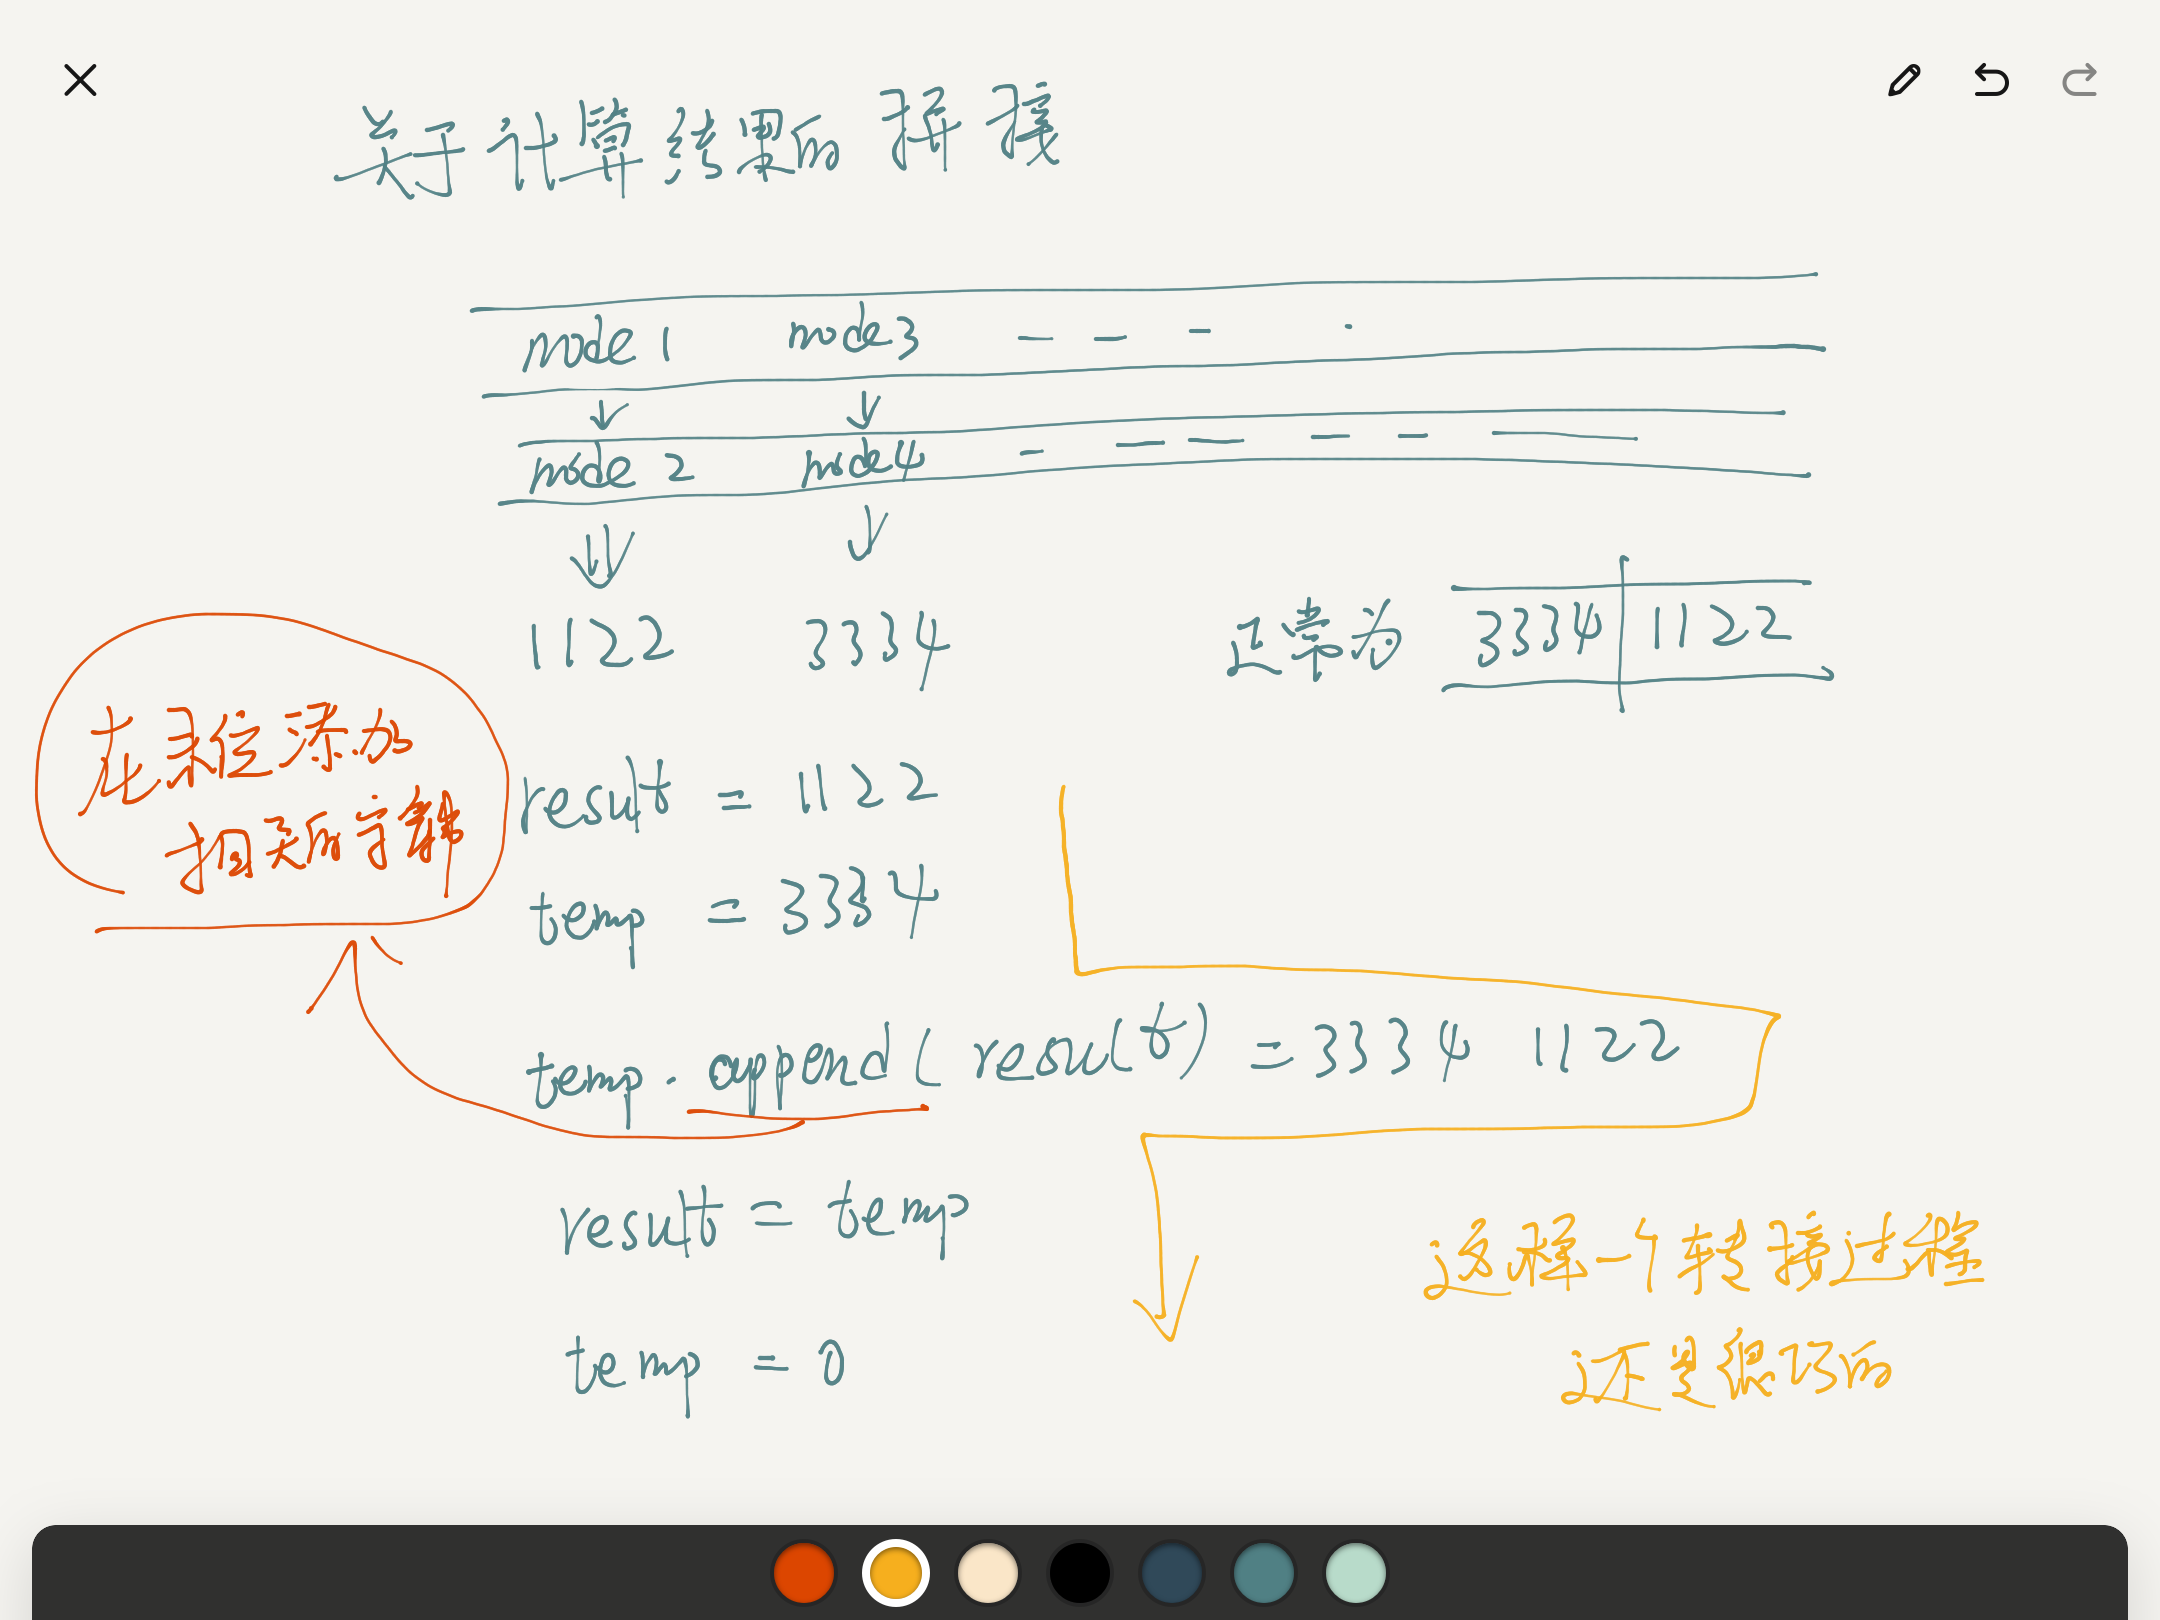 关于计算结果的拼接
node 1 node3 — — — ·
node 2 node4 — — — — — —
1122 3334
正常为 3334 | 1122
在末位添加
相 的字符
result = 1122
temp = 3334
temp. append( result) = 3334 1122
result = temp
temp = 0
这样一个转接过程
还是很巧的